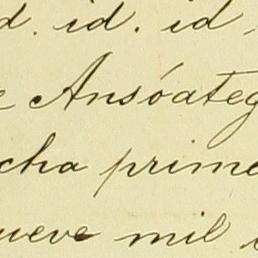 d. id. id. id.
e Ansóateg
cha prime
ueve mil